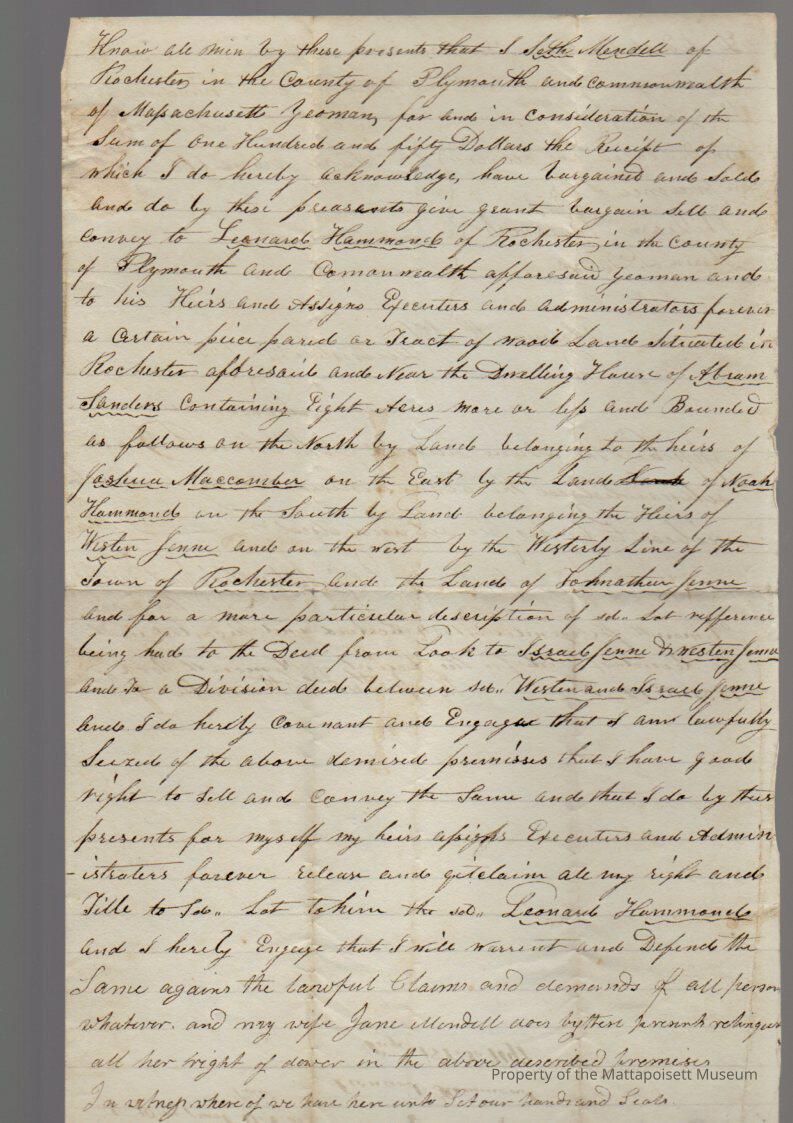 Know all min by these presents that I Seth Mendell of
Rochester in the County of Plymouth and commonwealth
of Massachusetts Yeoman, for and in consideration of the
Sum of One Hundred and fifty Dollars the Reciept of
which I do hereby acknowledge, have bargained and Sold
and do by these preasants give grant bargain Sell and
convey to Leonard Hammond of Rochester in the county
of Plymouth and Comonwealth afforesaid yeoman and
to his Heirs and Assigns Executers and administrators forever
a Certain peice parcel or Tract of wood Land Situated in
Rochester afforesaid and Near the Dwelling House of Abram
Sanders Containing Eight Acres more or less and Bounded
as follows on the North by Land belonging to the heirs of
Joshua Maccomber on the East by the Land of Noah
Hammond on the South by Land belonging the Heirs of
Westen Jenne and on the west by the Westerly Line of the
Town of Rochester and the Land of Johnathen Jenne
and for a more particular description of sd.. Lot refference
being had to the Deed from Look to Israel Jenne & Westen Jenne
and To a Division deed between sd.. Westen and Israel Jenne
and I do hereby Covenant and Engage that I am lawfully
Seized of the above demised premisses that I have good
right to Sell and Convey the Same and that I do by these
presents for myself my heirs assigns Executers and Admin
-istraters forever release and qitclaim all my right and
Title to Sd.. Lot to him the sd.. Leonard Hammond
and I hereby Engage that I will warrent and Defend the
Same agains the lawful Claims and demands of all person
whatever. and my wife Jane Mendell does by these presents relinques
all her right of dower in the above described premises
In witness where of we have here unto Set our hands and Seals.
Property of the Mattapoisett Museum